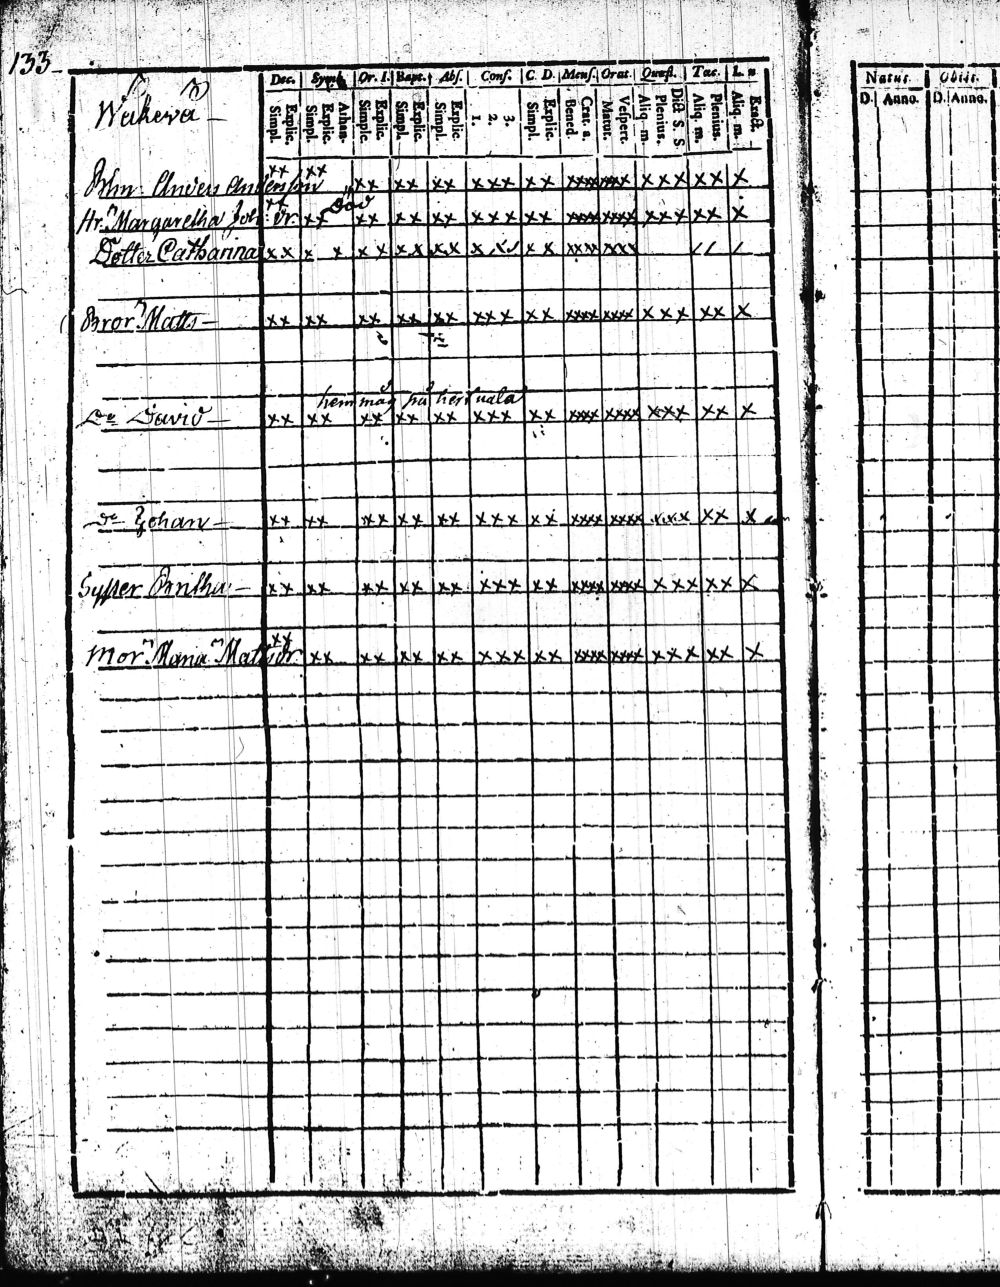 133
Dec. Symb. Or. I. Bapt. Abs. Conf. C. D. Mens. Orat. Quæst. Tac. L. n
Simpl. Explic. Simpl. Explic. Athan. Simplc. Explic. Simpl. Explic. Simpl. Explic 1. 2. 3. Simpl. Explic. Bened. Matut. Vespert. Aliq. m Plenius. Dict S. S Aliq. m. Plenius. Aliq. m. Exact.
Wakeva
xx xx
Anders Andersson xx xx xx xxx xx xxxx xxxx xxx xx x
xx död
Margaretha xx xx xx xx xxx xx xxxx xxxx xxx xx x
Dotter Catharina xx x x xx xx xx x xx xxxx xxxx
Bror Matts xx xx xx xx xx xxx xx xxxx xxxx xxx xx x
hemmåg på
De David xx xx xx xx xx xxx xx xxxx xxxx xxx xx x
De Johan xx xx xx xx xx xxx xx xxxx xxxx xxx xx x
Syster xx xx xx xx xx xxx xx xxxx xxxx xxx xx x
xx
Mor Maria Mattsdr xx xx xx xx xxx xx xxxx xxxx xxx xx x
Natus. Obiit.
D. Anno. D. Anno.